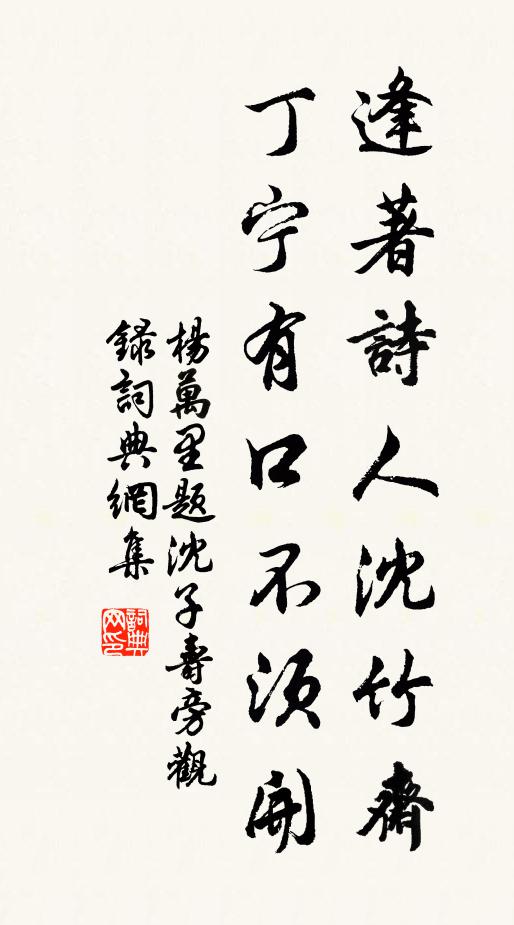 逢著詩人沈竹齋
丁宁有口不須開
楊萬里題沈子壽旁觀
錄詞典網集
詞典网印